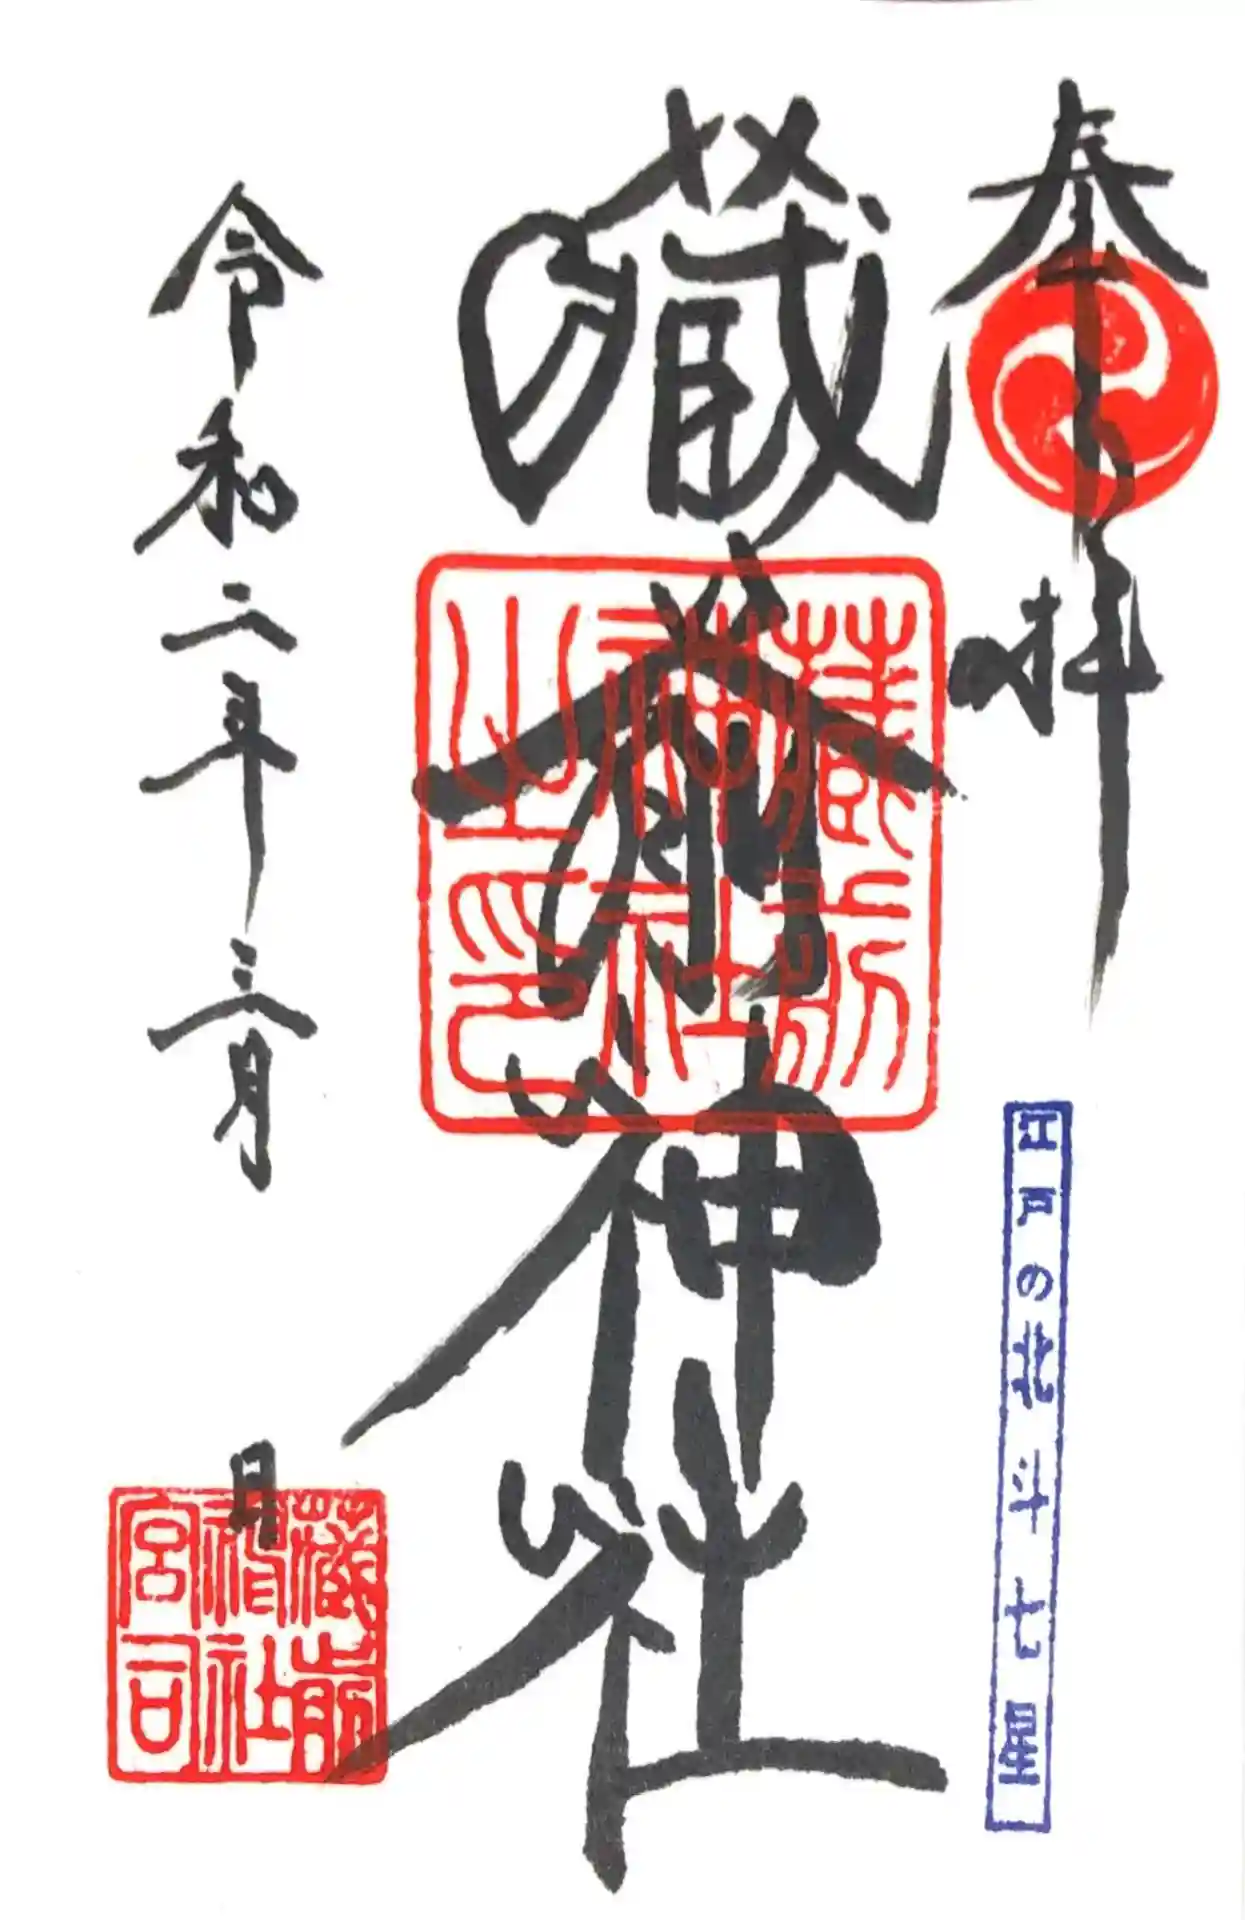 奉拝
江戸の北斗七星
藏前神社
藏前
神社
之印
令和二年三月 日
藏前
神社
宮司